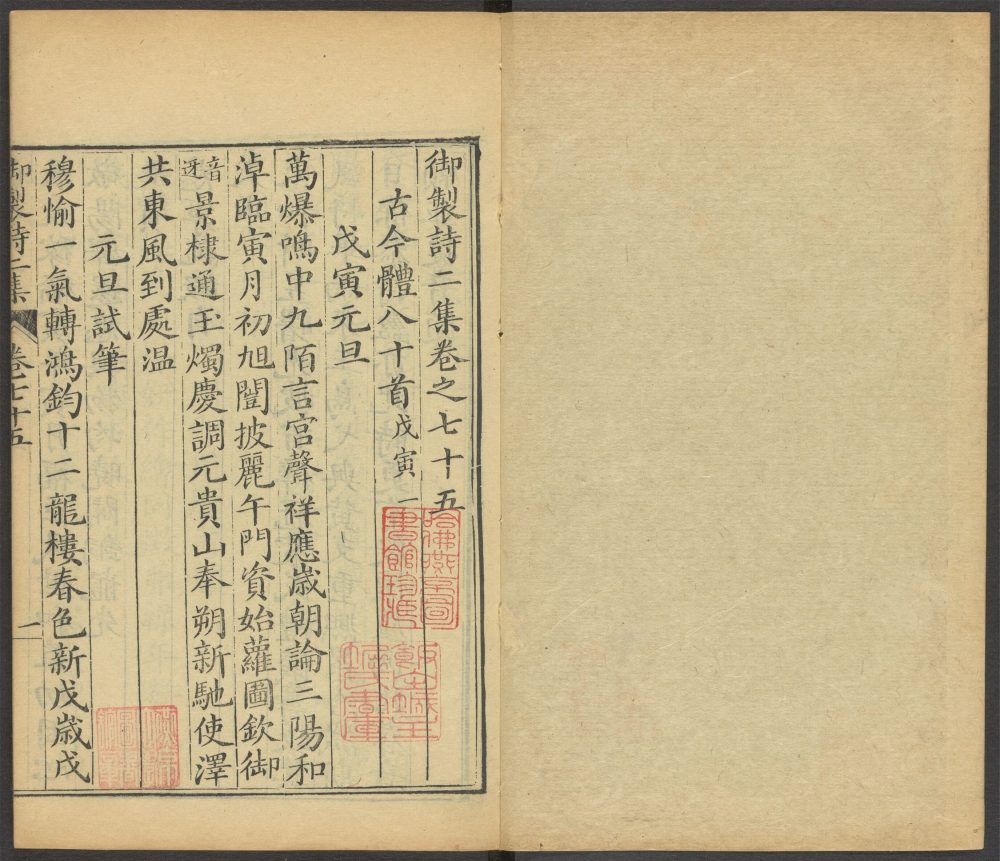 御製詩二集卷之七十五
古今體八十首戊寅一
戊寅元旦
萬爆鳴中九陌言宮聲祥應歳朝論三陽和
淖臨寅月初旭闓披麗午門資始蘿圖欽御
音迓景棣通玉燭慶調元貴山奉朔新馳使澤
共東風到處温
元旦試筆
穆愉一氣轉鴻鈞十二龍樓春色新戊歳戊
御製詩二集 卷七十五 一
哈佛燕京圖書館珍藏